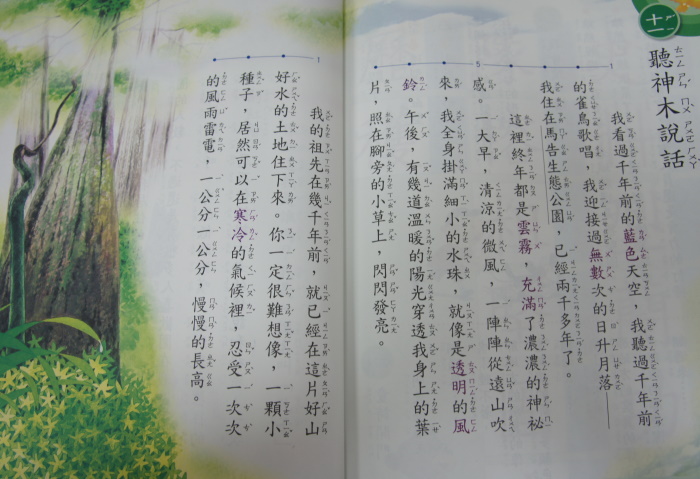 十一
聽神木說話
我看過千年前的藍色天空，我聽過千年前
的雀鳥歌唱，我迎接過無數次的日升月落——
我住在馬告生態公園，已經兩千多年了。
這裡終年都是雲霧，充滿了濃濃的神祕
感。一大早，清涼的微風，一陣陣從遠山吹
來，我全身掛滿細小的水珠，就像是透明的風
鈴。午後，有幾道溫暖的陽光穿透我身上的葉
片，照在腳旁的小草上，閃閃發亮。
我的祖先在幾千年前，就已經在這片好山
好水的土地住下來。你一定很難想像，一顆小
種子，居然可以在寒冷的氣候裡，忍受一次次
的風雨雷電，一公分一公分，慢慢的長高。